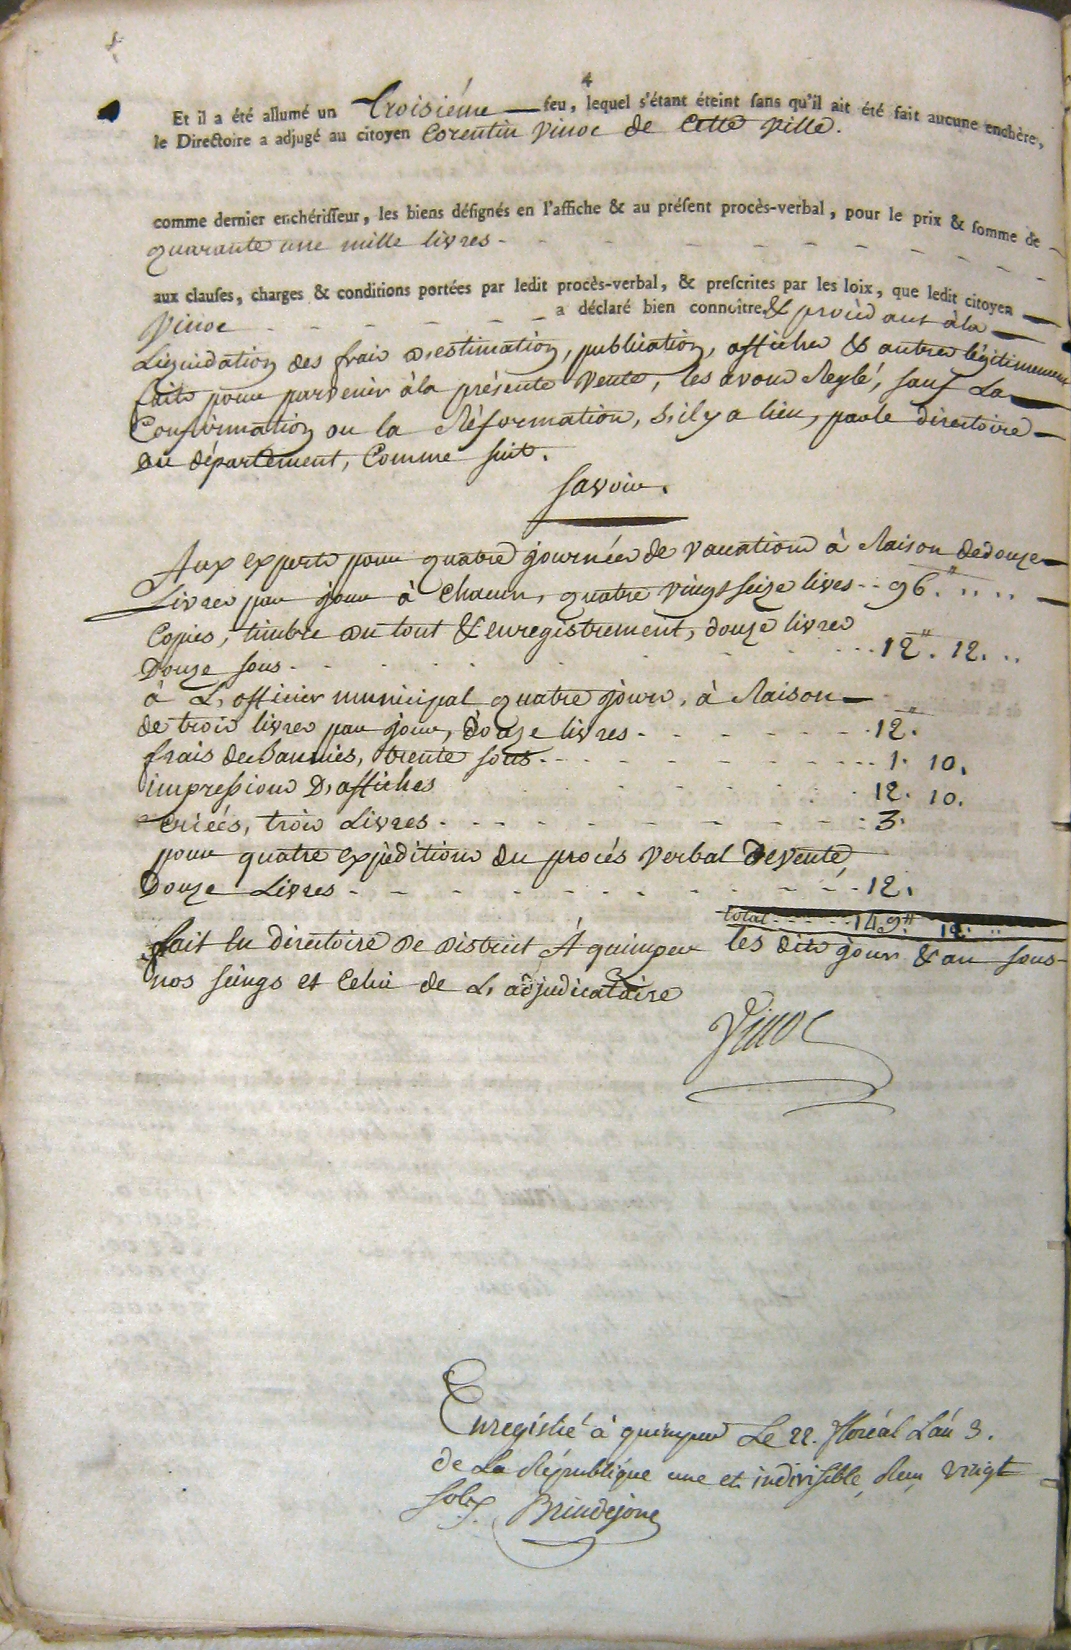 4
Et il a été allumé un troisiéme feu, lequel s'étant éteint sans qu'il ait été fait aucune enchère,
le Directoire a adjugé au citoyen Corentin Vinoc de Cette ville.
comme dernier enchérisseur, les biens désignés en l'affiche & au présent procès-verbal, pour le prix & somme de
quarante une mille livres - - - - - - - - -
aux clauses, charges & conditions portées par ledit procès-verbal, & prescrites par les loix, que ledit citoyen
Vinoc - - - - - - - a déclaré bien connoître. & procédant à la
Liquidation des frais d'estimation, publication, affiches & autres légitimement
faits pour parvenir à la présente vente, les avons Reglé, sauf La
Confirmation ou la Réformation, s'il y a lieu, par le directoire
du département, Comme suit.
Savoir.
Aux experts pour quatre journées de vacations à Raison de douze
Livres par jour à Chacun, quatre vingt seize livres - - 96.tt .. ..
Copies, timbre du tout & enregistrement, douze livres
Douze sous - - - - - - - - 12tt. 12. ..
à L'officier municipal quatre jours, à Raison
de trois livres par jour, douze livres - - - - - - 12.tt
frais de Bannies, trente sous - - - - - - - - 1. 10.
impressions D'affiches - - - - - - 12. 10.
criées, trois Livres - - - - - - - - - 3.
pour quatre expéditions du procés verbal de vente,
Douze Livres - - - - - - - - - - 12.
total - - - - - 149tt 12. ..
fait en directoire de District A quimper les dits jour & an sous
nos seings et Celui de L'adjudicataire
Vinoc
Enregistré à quimper Le 22. floréal L'an 3.
de La République une et indivisible, Reçu vingt
sols. Brindejonc